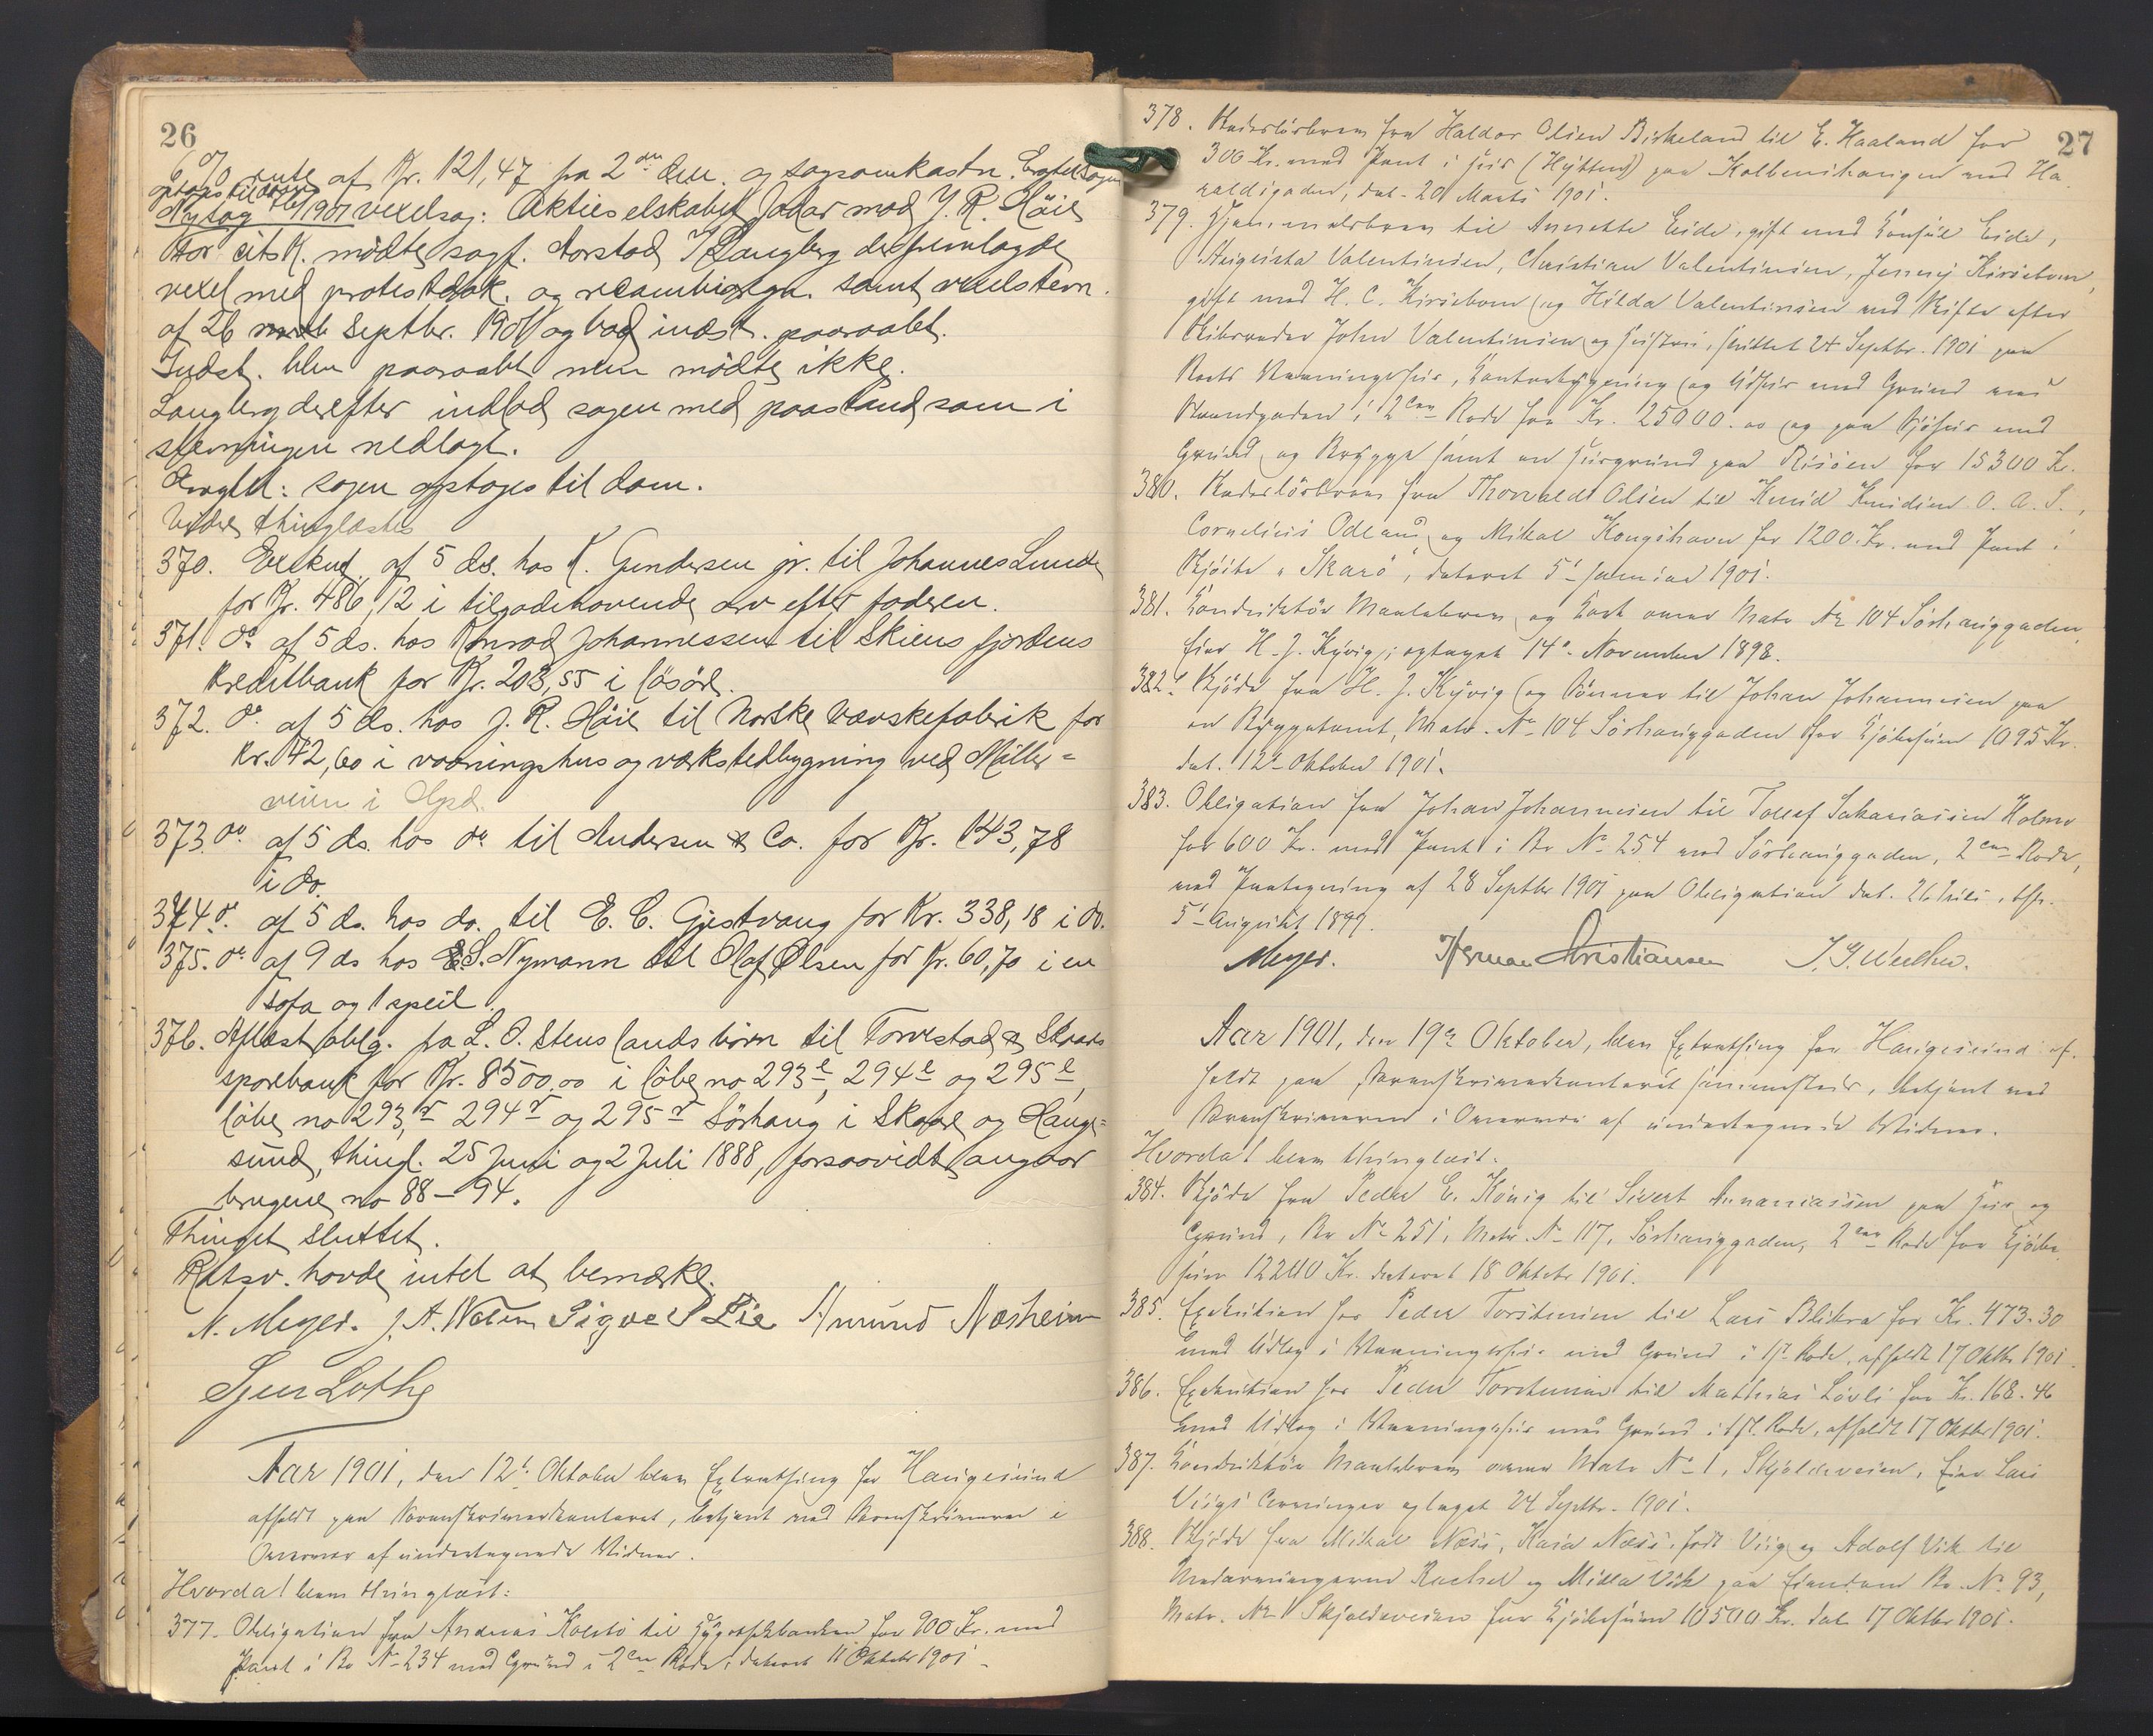 26
6% rente af Kr. 121,47 fra 2den den. og sagsomkostn. Eragtet: sagen
optages til doms
Ny sag 1901 vexelsag: Aktieselskabet Jadar mod J. R. Høie
For cits K. mødte sagf. Norstad Langberg der fremlagde
vexel med protestdok. og recambioregn. samt vexelstevn.
af 26 Septbr. 1901 og bad indst. paaraabt.
Indst. blev paaraabt men mødte ikke.
Langberg derefter indlod sagen med paastand som i
stevningen nedlagt.
Eragtet: sagen optages til dom.
Videre thinglæstes
370. Exekut. af 5 ds. hos K. Gundersen jr. til Johannes Lunde
for Kr. 486,12 i tilgodehavende arv efter faderen.
371. do af 5 ds. hos Konrad Johannessen til Skiensfjordens
Kreditbank for Kr. 203,55 i løsøre.
372. do af 5 ds. hos J. R. Høie til Norske Vævskefabrik for
Kr. 42,60 i vaaningshus og værkstedbygning ved Møller-
veien i Hgsd.
373. do af 5 ds. hos do til Andersen & Co. for Kr. 143,78
i do.
374. do af 5 ds. hos do. til E. C. Gjestvang for Kr. 338,18 i do.
375. do af 9 ds hos S. Nymann til Olaf Olsen for Kr. 60,70 i en
sofa og 1 speil.
376. Aflæst oblg. fra L. O. Stenslands børn til Torvestad & Skaare
sparebank for Kr. 8500,00 i løbe no 293 l, 294 l og 295 l,
løbe no 293 r, 294 r og 295 r Sørhaug i Skaare og Hauge-
sund, thingl. 25 Juni og 2 Juli 1888, forsaavidt angaar
brugene no 88-94.
Thinget sluttet.
Retsv. havde intet at bemærke.
N. Meyer. J. A. Sigve S Lie Amund Næsheim
Sjur Lothe
Aar 1901, den 12te Oktober blev Extrathing for Haugesund
afholdt paa Sorenskriverkontoret, betjent med Sorenskriveren i
Overvær af undertegnede Vidner.
Hvorda! blev thinglæst:
377. Obligation fra Andreas Kolstø til Hypothekbanken for 900 Kr. med
Pant i Br No 234 med Grund i 2den Rode, dateret 11 Oktobr 1901.
27
378. Skadesløsbrev fra Haldor Olsen Birkeland til E. Haaland for
300 Kr. med Pant i Hus (Hytten) paa Kolbenshaugen ved Ha-
raldsgaden, dat. 20 Marts 1901.
379. Hjemmelsbrev til Annette Eide, gift med Konsul Eide,
Augusta Valentinsen, Christian Valentinsen, Jenny Kirsebom,
gift med H. C. Kirsebom og Hilda Valentinsen ved Skifte efter
Skibsreder John Valentinsen og Hustru, sluttet 24 Septbr. 1901 paa
Boets Vaaningshus, Kontorbygning og Udhus med Grund ved
Strandgaden i 2den Rode for Kr. 25000.00 og paa Sjøhus med
Grund og Brygge samt en Husgrund paa Risøen for 15300 Kr.
380. Skadesløsbrev fra Thorvald Olsen til Knud Knudsen O. A. S.,
Cornelius Odland og Mikal Kongshavn for 1200 Kr. med Pant i
Skjøite „Skarø“, dateret 5te Januar 1901.
381. Konduktør Maalebrev og Kart over Matr No 104 Sørhauggaden,
Eier H. J. Kyvig, optaget 14de November 1898.
382. Skjøde fra H. J. Kyvig og Sønner til Johan Johannesen paa
en Byggetomt, Matr. No 104 Sørhauggaden for Kjøbesum 1095 Kr.
dat. 12te Oktober 1901.
383. Obligation fra Johan Johannesen til Tollef Sakariassen Holme
for 600 Kr. med Pant i Br No 254 ved Sørhauggaden, 2den Rode,
med Paategning af 28 Septbr 1901 paa Obligation dat. 26 Juli, thl.
5te August 1899.
Meyer. Herman Christiansen
Aar 1901, den 19de Oktober, blev Extrathing for Haugesund af-
holdt paa Sorenskriverkontoret sammesteds, betjent ved
Sorenskriveren i Overvær af undertegnede Vidner.
Hvorda! blev thinglæst.
384. Skjøde fra Peder E. König til Sivert Annaniassen paa Hus og
Grund, Br No 251, Matr. No 117, Sørhauggaden, 2den Rode for Kjøbe-
sum 12200 Kr. dateret 18 Oktobr 1901.
385. Exekution hos Peder Torstensen til Lars Blikra for Kr. 473.30
med Udlæg i Vaaningshus med Grund i 1ste Rode, afholdt 17 Oktbr 1901.
386. Exekution hos Peder Torstensen til Mathias Løvli for Kr. 168.46
med Udlæg i Vaaningshus med Grund i 1ste Rode, afholdt 17 Oktbr 1901.
387. Konduktør Maalebrev over Matr No 1, Skjoldaveien, Eier Lars
Viigs Arvinger optaget 24 Septbr. 1901.
388. Skjøde fra Mikal Næss, Kaia Næss, født Viig og Adolf Vik til
Medarvingerne Rachel og Milla Vik paa Eiendom Br. No 93,
Matr. No 1 Skjoldaveien for Kjøbesum 10500 Kr. dat. 17 Oktbr 1901.